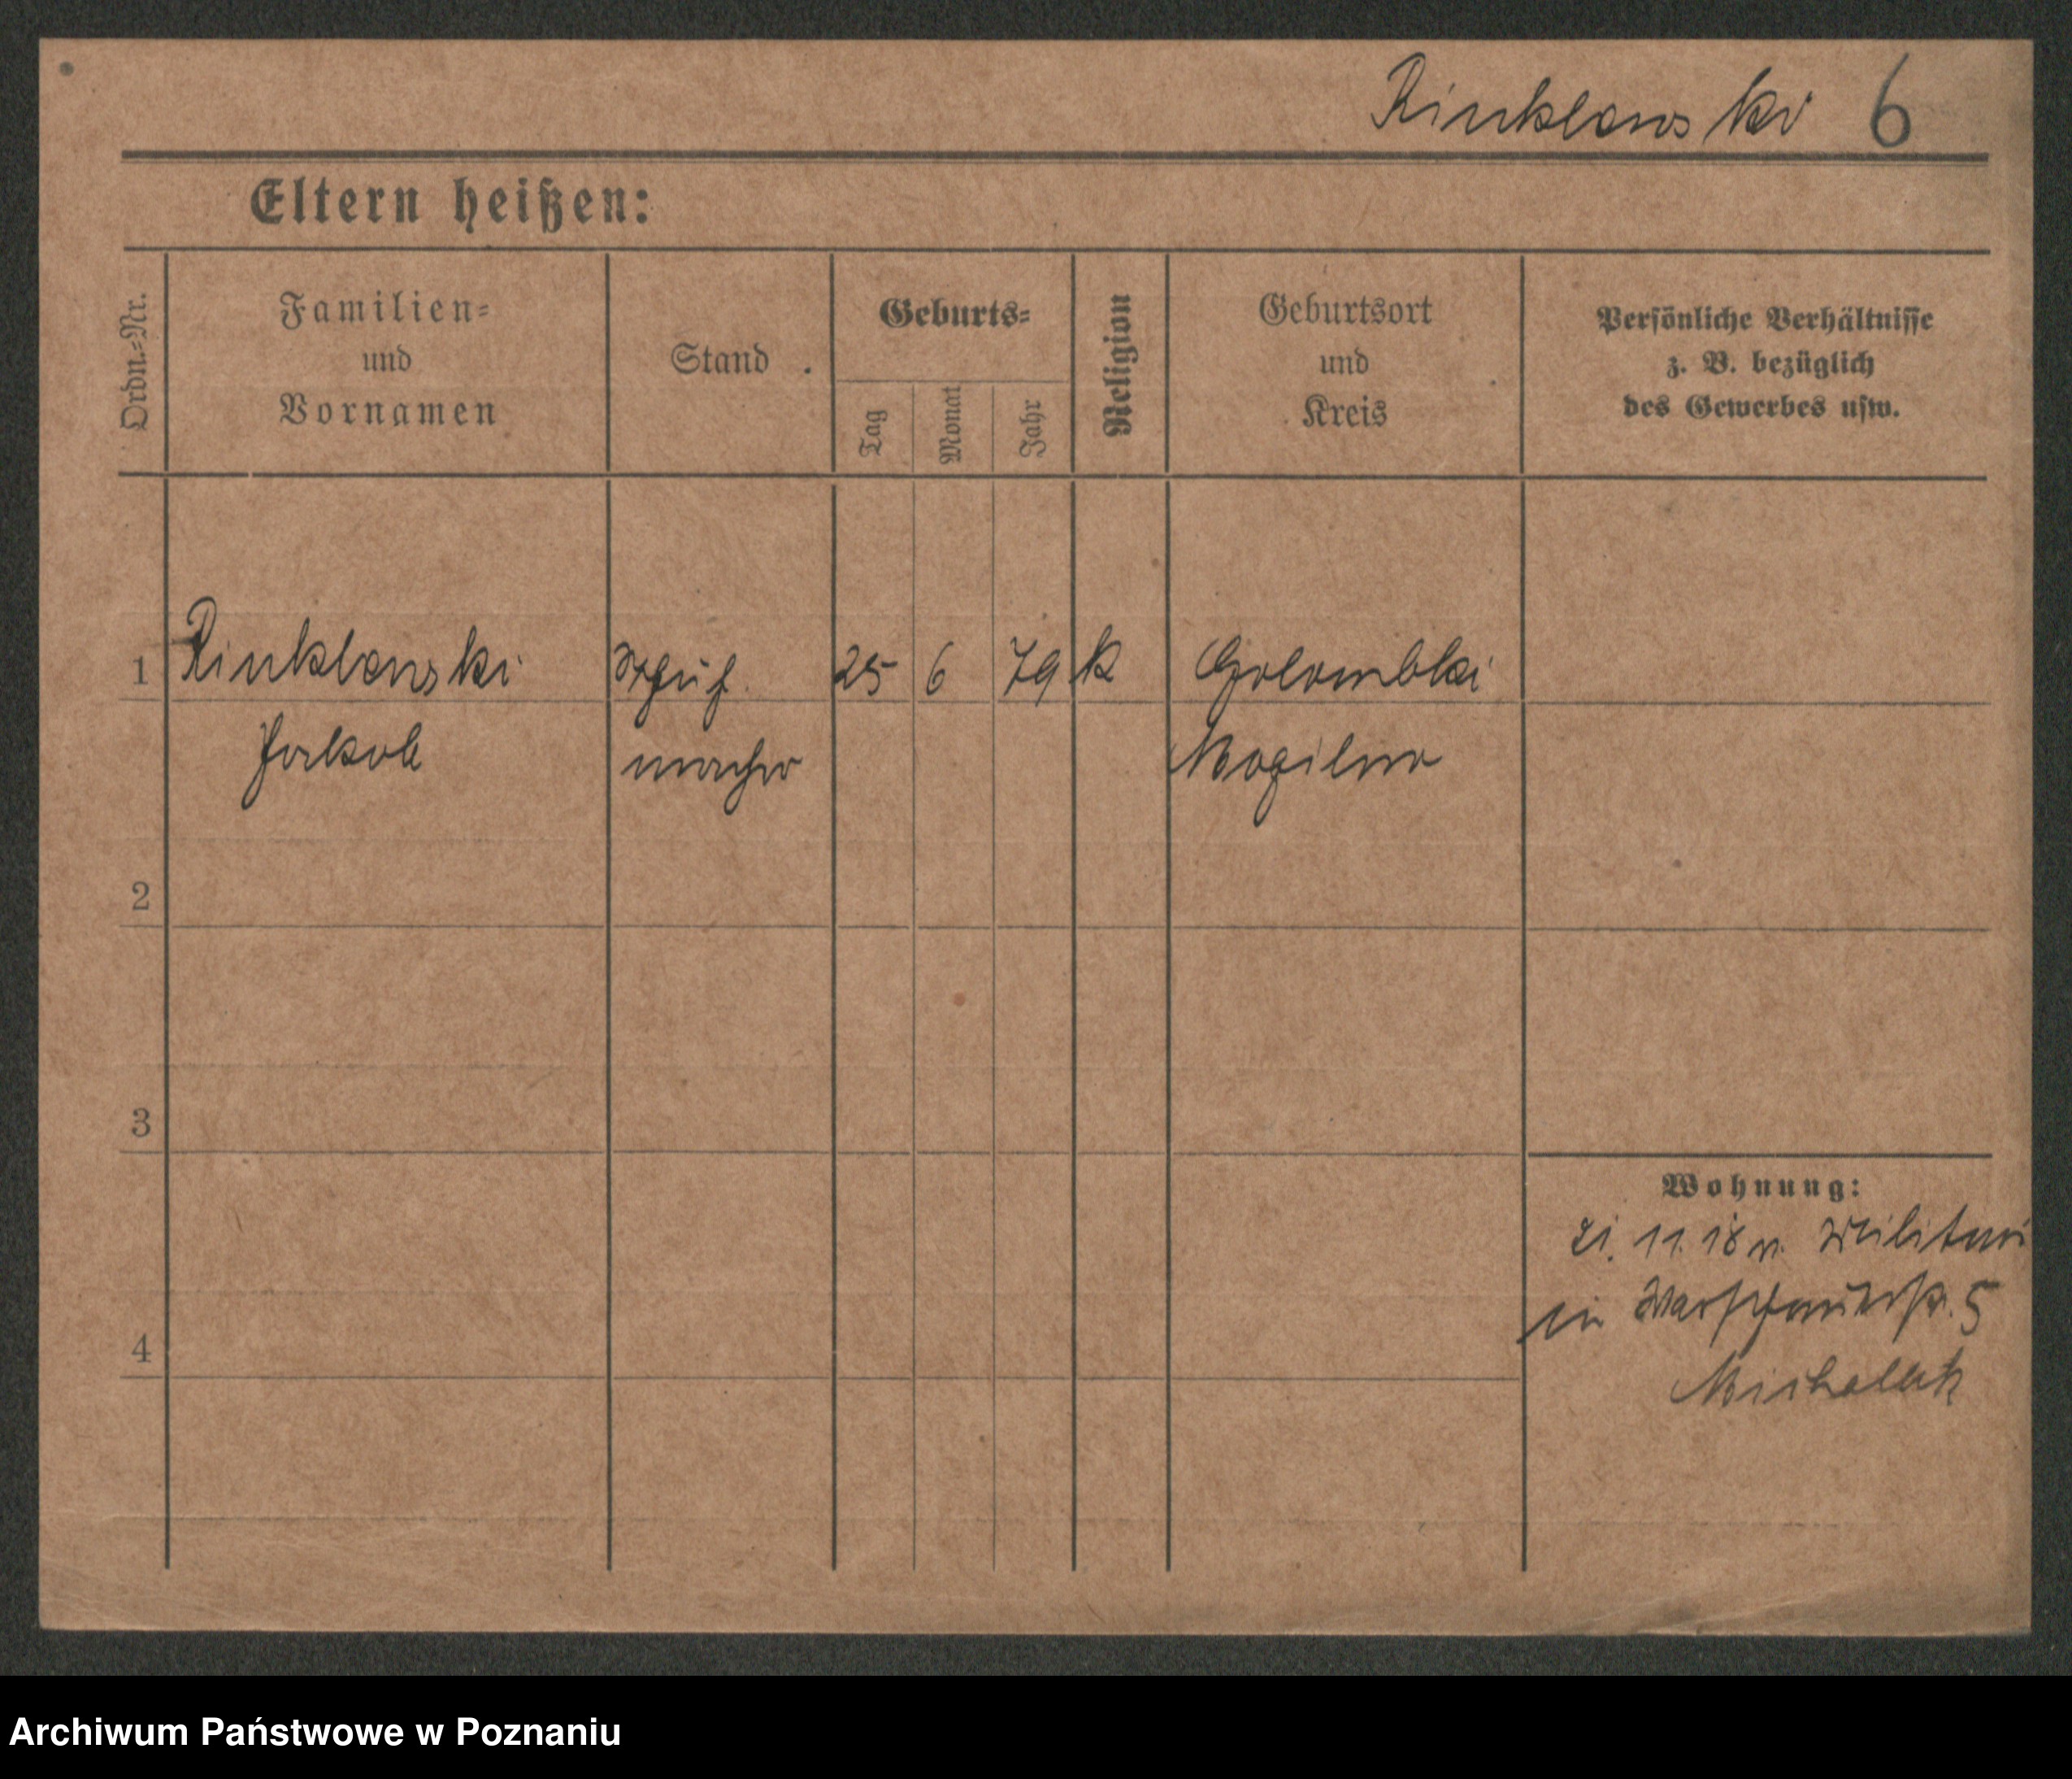 Rinklewski 6
Eltern heißen:
Ordn.=Nr.
Familien=
und
Vornamen
Stand
Geburts=
Tag
Monat
Jahr
Religion
Geburtsort
und
Kreis
Persönliche Verhältnisse
z. B. bezüglich
des Gewerbes usw.
1 Rinklewski Schuh 25 6 79 K Golombki
Jakob macher Mogilno
2
3
Wohnung:
21. 11. 18 v. Militär
in Warschauerstr. 5
4
Michalak
Archiwum Państwowe w Poznaniu